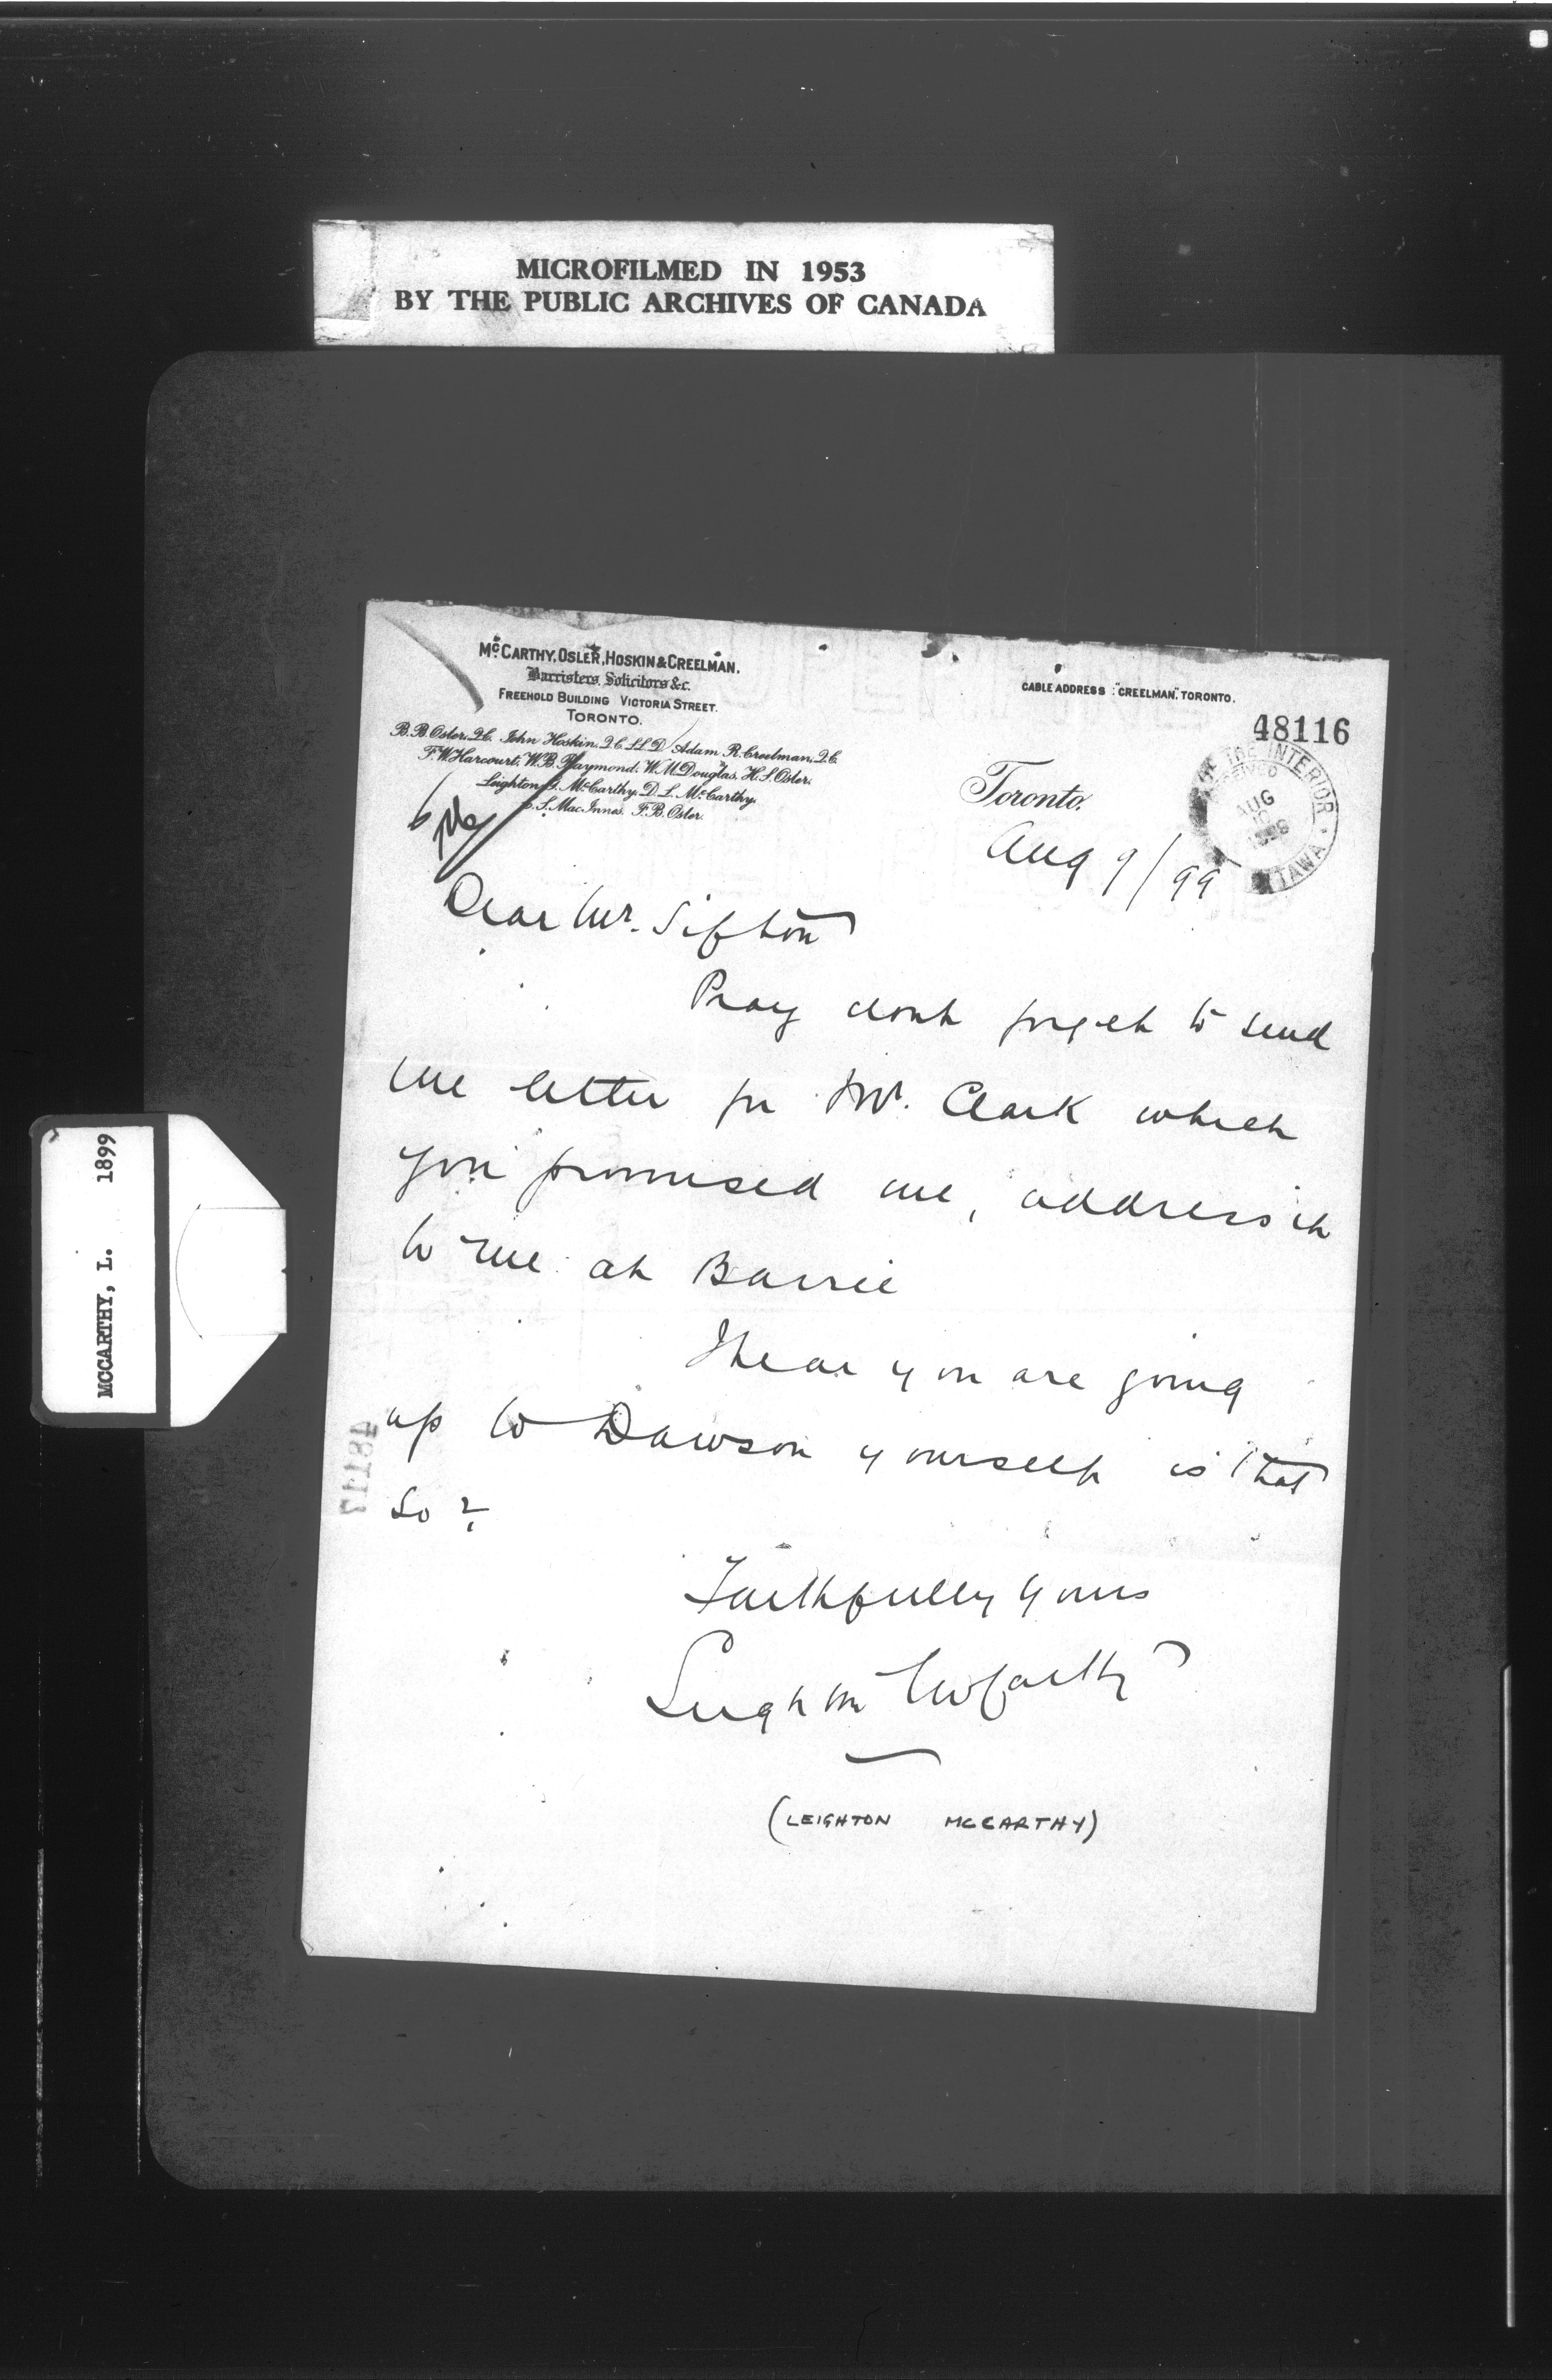 MICROFILMED IN 1953
BY THE PUBLIC ARCHIVES OF CANADA
MCCARTHY, L. 1899
McCARTHY, OSLER, HOSKIN & CREELMAN.
Barristers, Solicitors &c.
FREEHOLD BUILDING VICTORIA STREET.
TORONTO.
B.B. Osler, Q.C. John Hoskin, Q.C. LL.D. Adam R. Creelman, Q.C.
F.W. Harcourt, W.B. Raymond, W.M. Douglas, H.S. Osler,
Leighton G. McCarthy, D.L. McCarthy,
C.S. MacInnes, F.B. Osler.
CABLE ADDRESS "CREELMAN," TORONTO.
48116
OF THE INTERIOR
RECEIVED
AUG
10
OTTAWA
Toronto,
Aug 9/99
Dear Mr. Sifton
Pray dont forget to send
me letter for Mr. Clark which
you promised me, address it
to me at Barrie
I hear you are going
up to Dawson yourself is that
so?
Faithfully yours
Leighton McCarthy
(LEIGHTON MCCARTHY)
48117